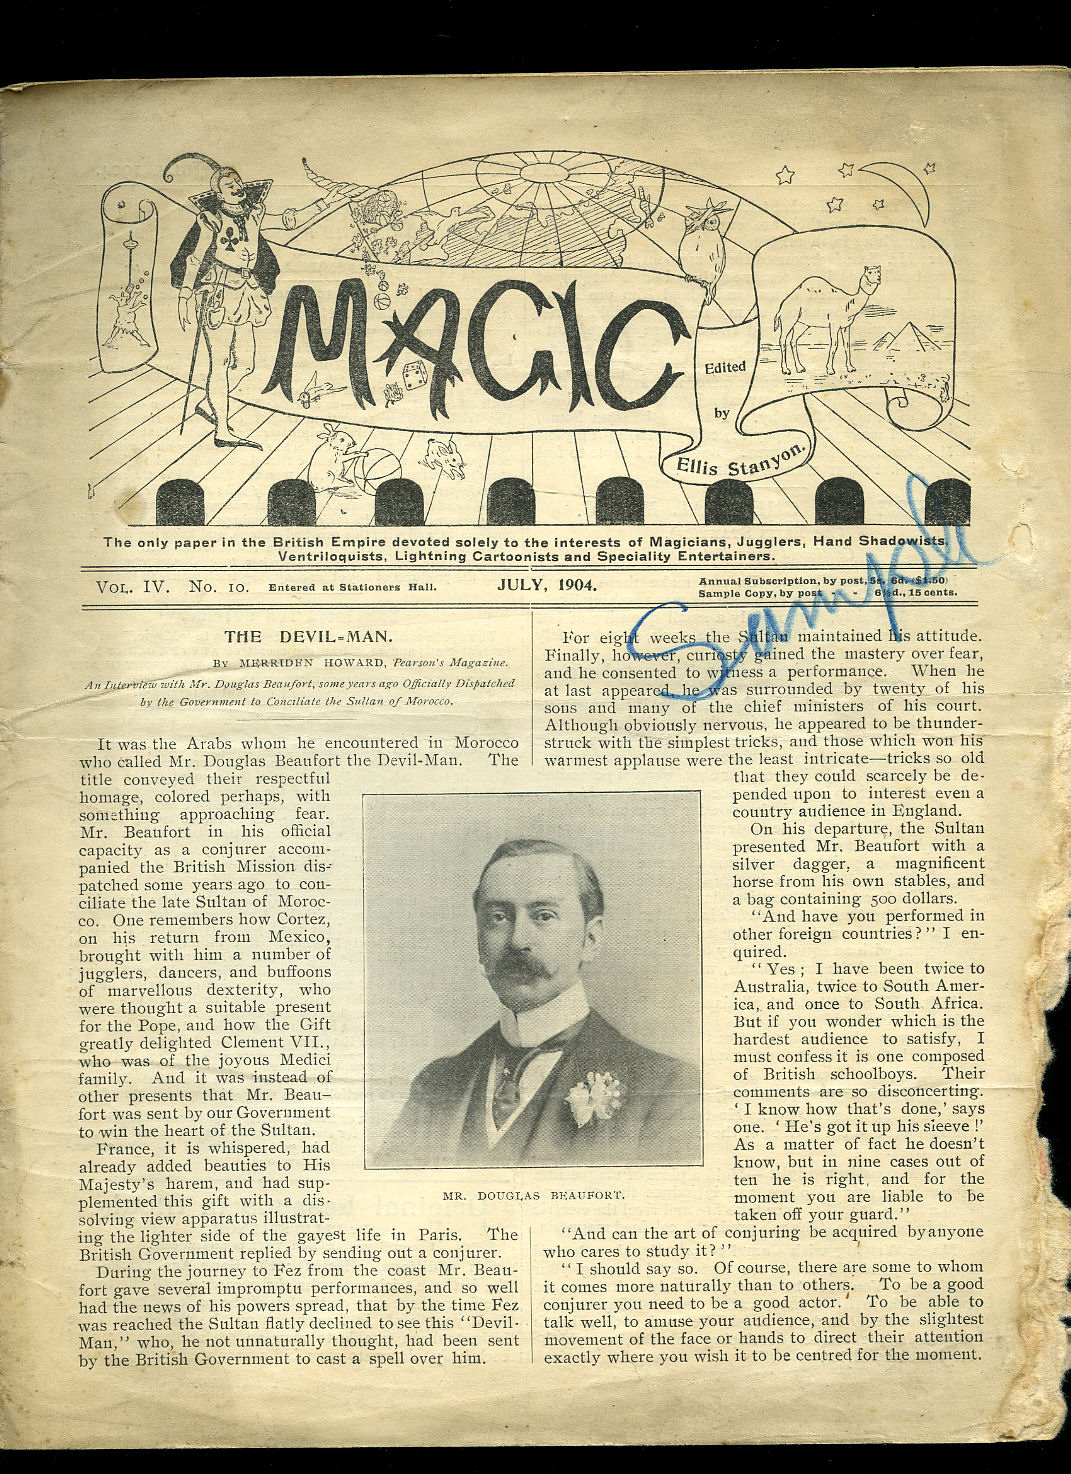 MAGIC
Edited
by
Ellis Stanyon.
The only paper in the British Empire devoted solely to the interests of Magicians, Jugglers, Hand Shadowists,
Ventriloquists, Lightning Cartoonists and Speciality Entertainers.
VOL. IV. No. 10. Entered at Stationers Hall. JULY, 1904.
Annual Subscription, by post, 5s. 6d. ($1.50)
Sample Copy, by post - - 6½d., 15 cents.
Sample
THE DEVIL=MAN.
BY MERRIDEN HOWARD, Pearson's Magazine.
An Interview with Mr. Douglas Beaufort, some years ago Officially Dispatched
by the Government to Conciliate the Sultan of Morocco.
It was the Arabs whom he encountered in Morocco
who called Mr. Douglas Beaufort the Devil-Man. The
title conveyed their respectful
homage, colored perhaps, with
something approaching fear.
Mr. Beaufort in his official
capacity as a conjurer accom-
panied the British Mission dis-
patched some years ago to con-
ciliate the late Sultan of Moroc-
co. One remembers how Cortez,
on his return from Mexico,
brought with him a number of
jugglers, dancers, and buffoons
of marvellous dexterity, who
were thought a suitable present
for the Pope, and how the Gift
greatly delighted Clement VII.,
who was of the joyous Medici
family. And it was instead of
other presents that Mr. Beau-
fort was sent by our Government
to win the heart of the Sultan.
France, it is whispered, had
already added beauties to His
Majesty's harem, and had sup-
plemented this gift with a dis-
solving view apparatus illustrat-
ing the lighter side of the gayest life in Paris. The
British Government replied by sending out a conjurer.
During the journey to Fez from the coast Mr. Beau-
fort gave several impromptu performances, and so well
had the news of his powers spread, that by the time Fez
was reached the Sultan flatly declined to see this "Devil-
Man," who, he not unnaturally thought, had been sent
by the British Government to cast a spell over him.
MR. DOUGLAS BEAUFORT.
For eight weeks the Sultan maintained his attitude.
Finally, however, curiosty gained the mastery over fear,
and he consented to witness a performance. When he
at last appeared he was surrounded by twenty of his
sons and many of the chief ministers of his court.
Although obviously nervous, he appeared to be thunder-
struck with the simplest tricks, and those which won his
warmest applause were the least intricate—tricks so old
that they could scarcely be de-
pended upon to interest even a
country audience in England.
On his departure, the Sultan
presented Mr. Beaufort with a
silver dagger, a magnificent
horse from his own stables, and
a bag containing 500 dollars.
"And have you performed in
other foreign countries?" I en-
quired.
"Yes; I have been twice to
Australia, twice to South Amer-
ica, and once to South Africa.
But if you wonder which is the
hardest audience to satisfy, I
must confess it is one composed
of British schoolboys. Their
comments are so disconcerting.
'I know how that's done,' says
one. 'He's got it up his sleeve!'
As a matter of fact he doesn't
know, but in nine cases out of
ten he is right, and for the
moment you are liable to be
taken off your guard."
"And can the art of conjuring be acquired by anyone
who cares to study it?"
"I should say so. Of course, there are some to whom
it comes more naturally than to others. To be a good
conjurer you need to be a good actor. To be able to
talk well, to amuse your audience, and by the slightest
movement of the face or hands to direct their attention
exactly where you wish it to be centred for the moment.